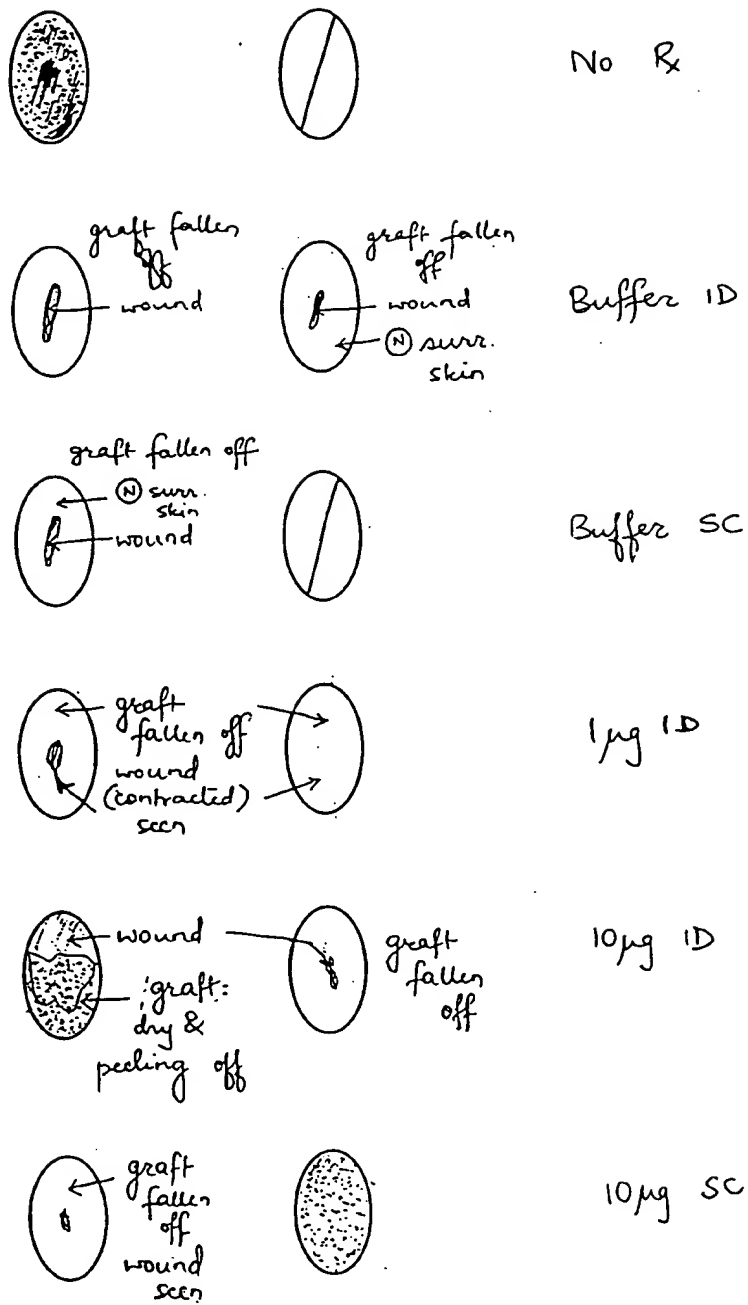 No Rx
graft fallen
off
wound
graft fallen
off
wound
N surr.
skin
Buffer ID
graft fallen off
N surr.
skin
wound
Buffer SC
graft
fallen off
wound
(contracted)
seen
1µg ID
wound
graft:
dry &
peeling off
graft
fallen
off
10µg ID
graft
fallen
off
wound
seen
10µg SC